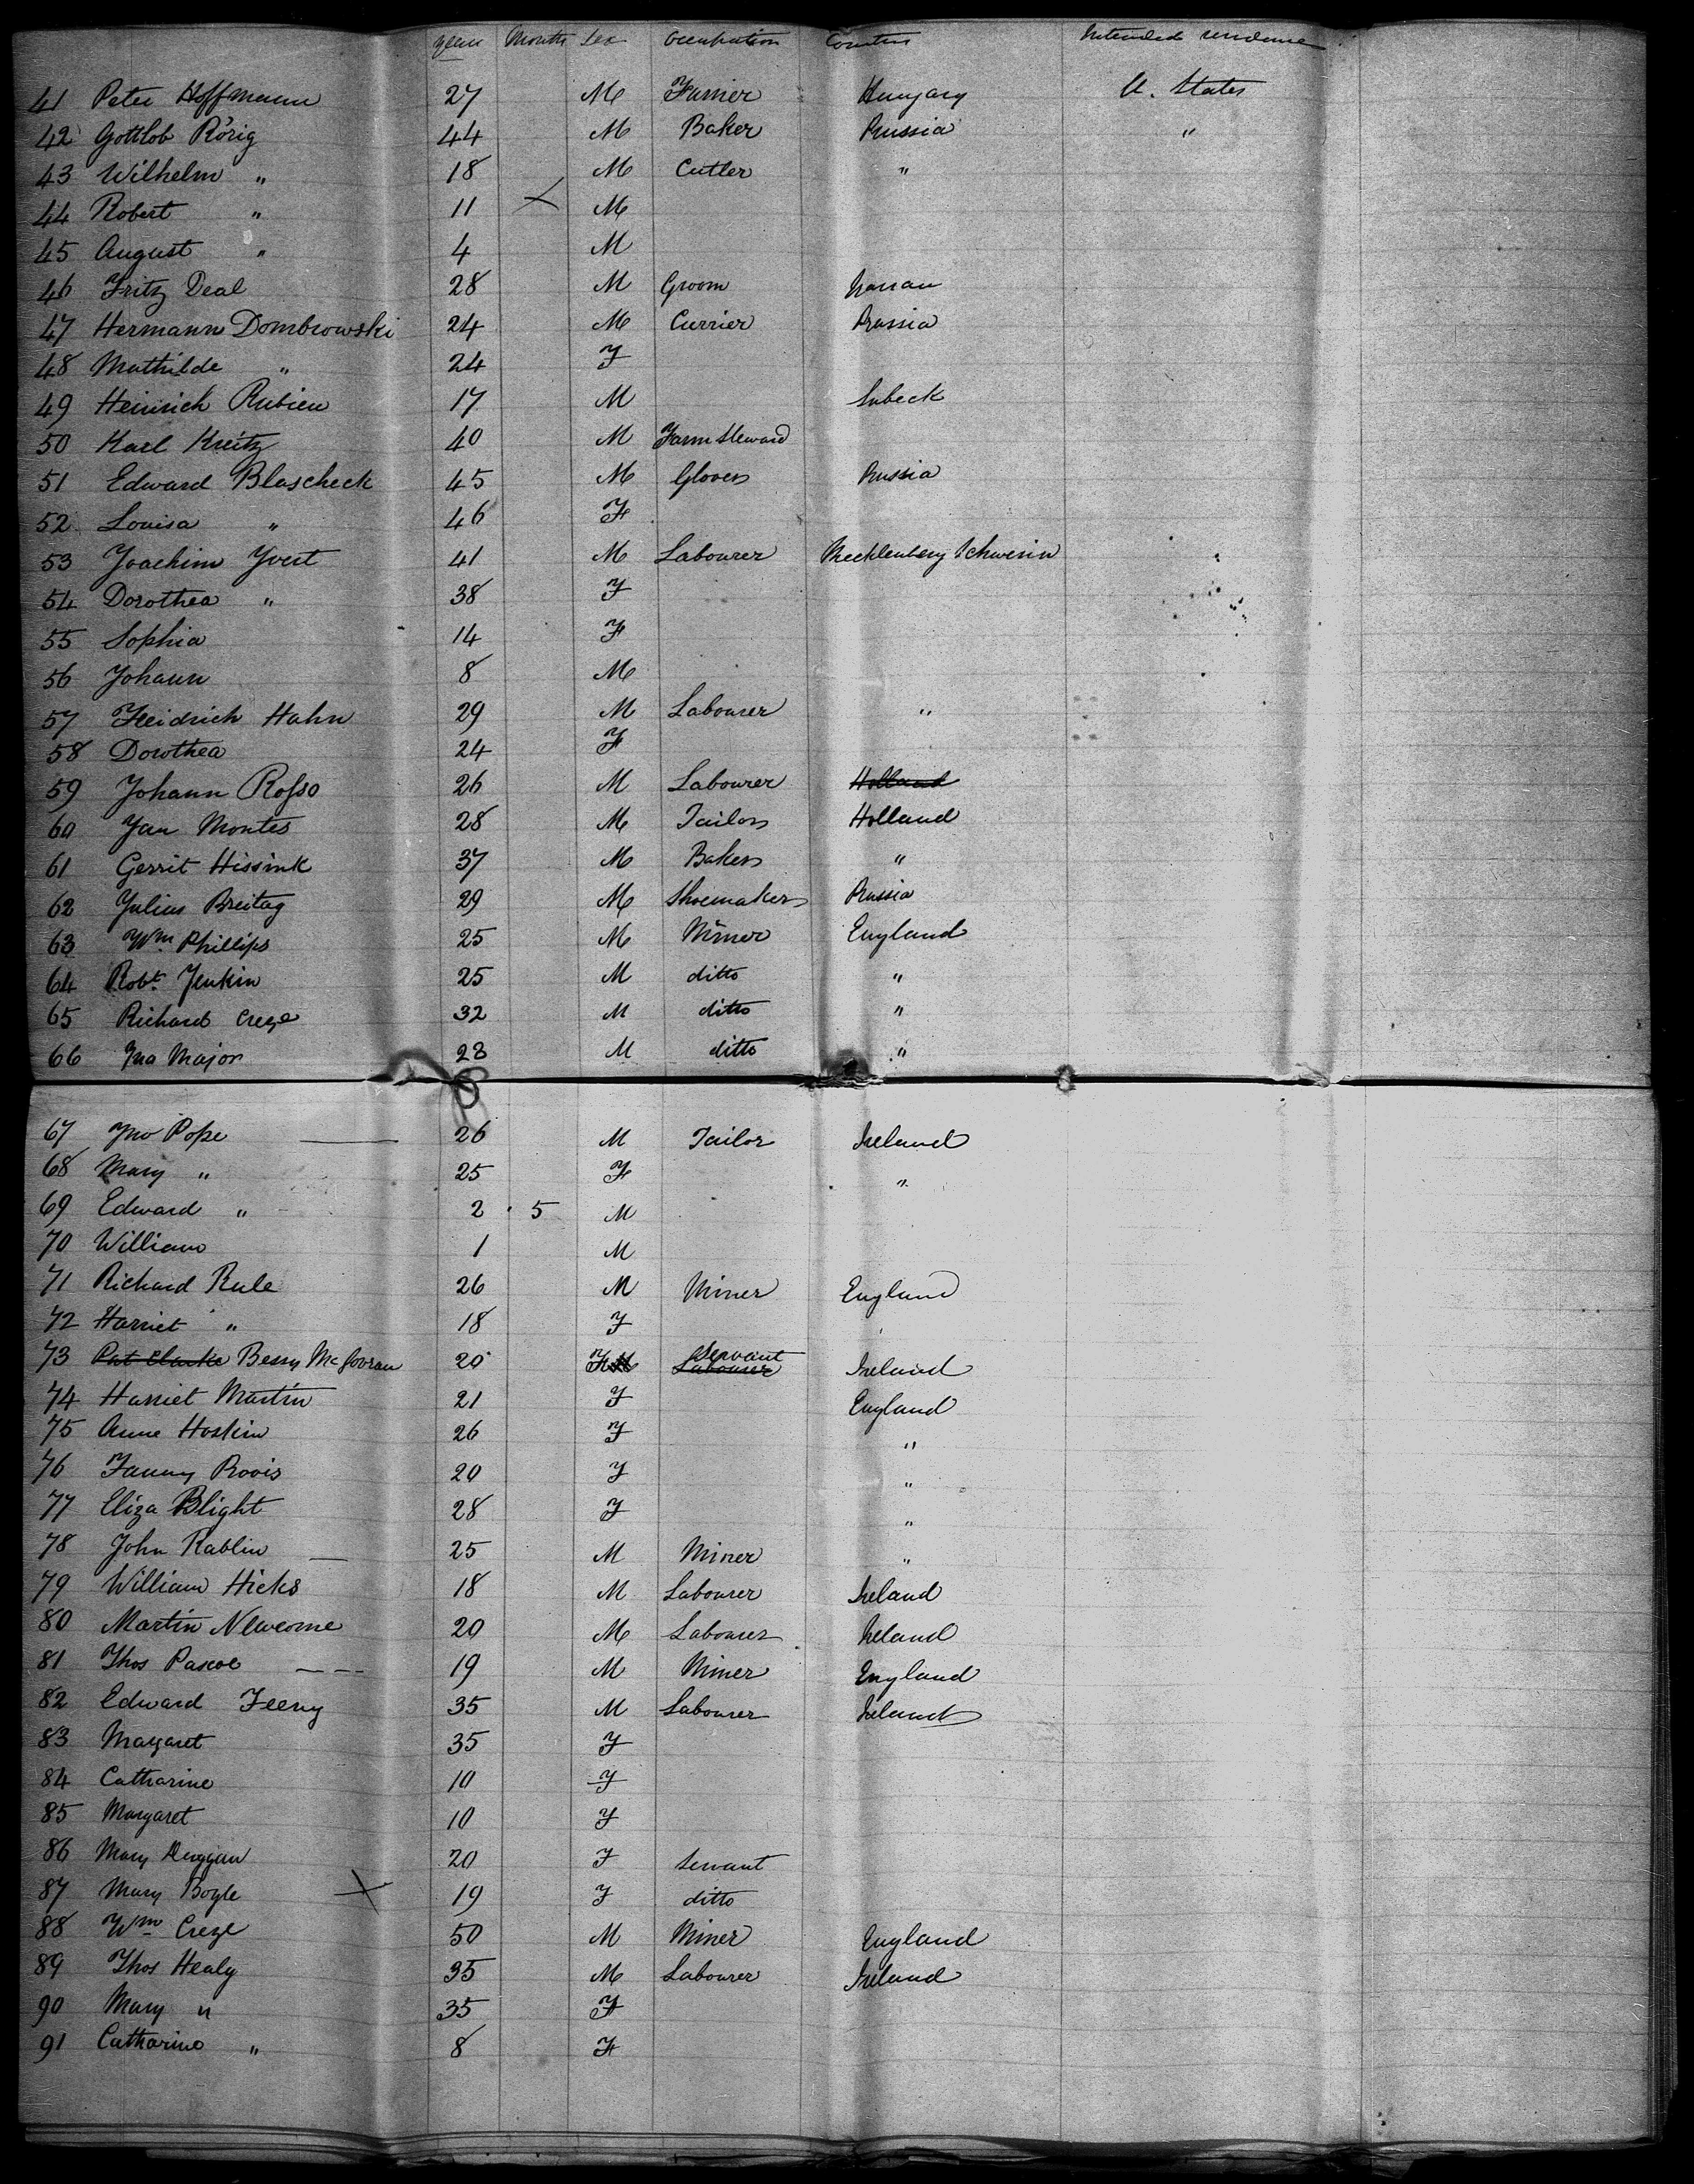 years Months Sex Occupation Countries Intended residence
41 Peter Hoffmann 27 M Farrier Hungary U. States
42 Gottlob Rörig 44 M Baker Prussia "
43 Wilhelm " 18 M Cutler "
44 Robert " 11 M
45 August " 4 M
46 Fritz Deal 28 M Groom Nassau
47 Hermann Dombrowski 24 M Currier Prussia
48 Mathilde " 24 F
49 Heinrich Rubien 17 M Lubeck
50 Karl Kreitz 40 M Farm Steward
51 Edward Blascheck 45 M Glover Prussia
52 Louisa " 46 F
53 Joachim Yvert 41 M Labourer Mecklenberg Schwerin
54 Dorothea " 38 F
55 Sophia 14 F
56 Johann 8 M
57 Freidrich Hahn 29 M Labourer "
58 Dorothea 24 F
59 Johann Rosso 26 M Labourer Holland
60 Jan Montes 28 M Tailor Holland
61 Gerrit Hissink 37 M Baker "
62 Julius Breitag 29 M Shoemaker Prussia
63 Wm Phillips 25 M Miner England
64 Robt Jenkin 25 M ditto "
65 Richard Creze 32 M ditto "
66 Jna Major 28 M ditto "
67 Jno Pope 26 M Tailor Ireland
68 Mary " 25 F "
69 Edward " 2 5 M
70 William 1 M
71 Richard Rule 26 M Miner England
72 Harriet " 18 F
73 Pat Clarke Bessy McGovran 20 F M Servant Labourer Ireland
74 Harriet Martin 21 F England
75 Anne Hoskin 26 F "
76 Fanny Provis 20 F "
77 Eliza Blight 28 F "
78 John Rablin 25 M Miner "
79 William Hicks 18 M Labourer Ireland
80 Martin Newcome 20 M Labourer Ireland
81 Thos Pascoe 19 M Miner England
82 Edward Feeny 35 M Labourer Ireland
83 Margaret 35 F
84 Catharine 10 F
85 Margaret 10 F
86 Mary Duggan 20 F Servant
87 Mary Boyle 19 F ditto
88 Wm Creze 50 M Miner England
89 Thos Healy 35 M Labourer Ireland
90 Mary " 35 F
91 Catharine " 8 F